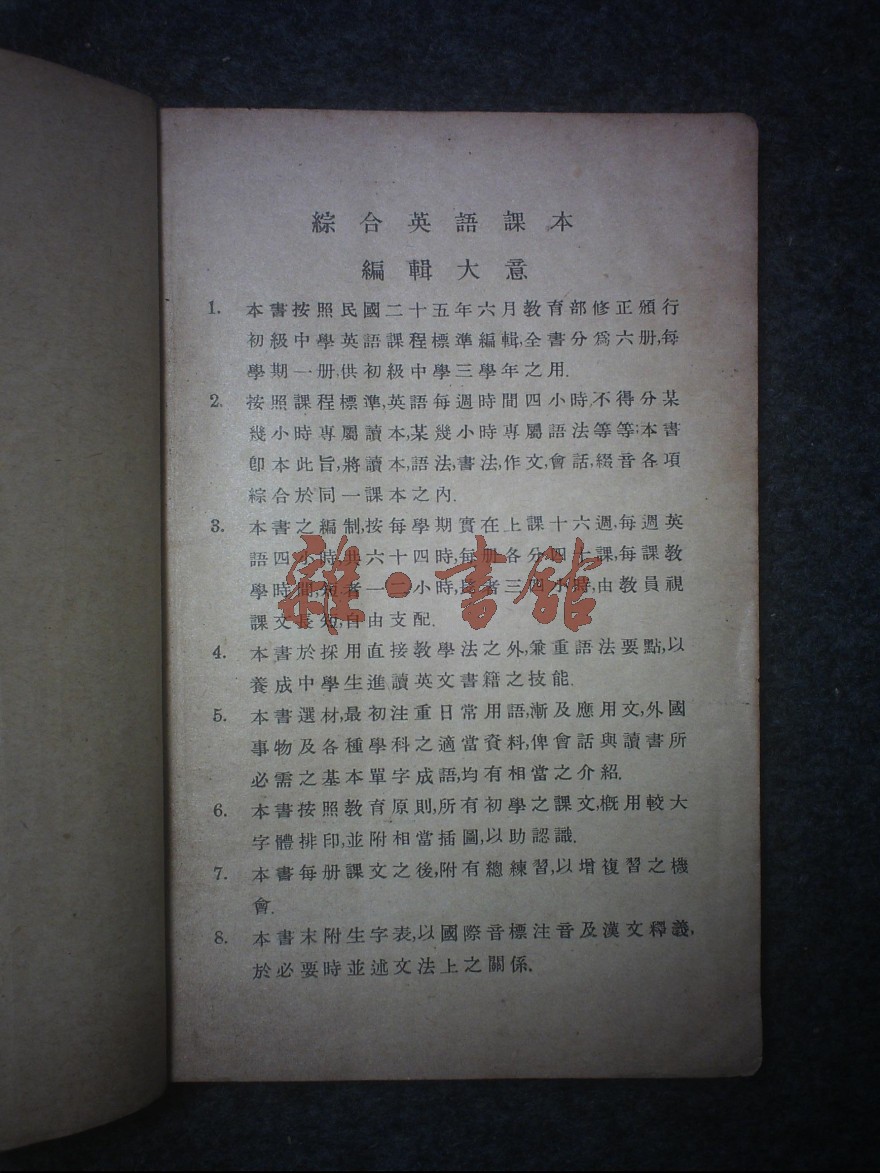 綜合英語課本
編輯大意
1. 本書按照民國二十五年六月教育部修正頒行
初級中學英語課程標準編輯,全書分爲六册,每
學期一册,供初級中學三學年之用.
2. 按照課程標準,英語每週時間四小時,不得分某
幾小時專屬讀本,某幾小時專屬語法等等;本書
卽本此旨,將讀本,語法,書法,作文,會話,綴音各項
綜合於同一課本之內.
3. 本書之編制,按每學期實在上課十六週,每週英
語四小時,共六十四時,每册各分四十課,每課敎
學時間,短者一二小時,長者三四小時,由敎員視
課文長短,自由支配.
雜·書館
4. 本書於採用直接敎學法之外,兼重語法要點,以
養成中學生進讀英文書籍之技能.
5. 本書選材,最初注重日常用語,漸及應用文,外國
事物及各種學科之適當資料,俾會話與讀書所
必需之基本單字成語,均有相當之介紹.
6. 本書按照敎育原則,所有初學之課文,槪用較大
字體排印,並附相當插圖,以助認識.
7. 本書每册課文之後,附有總練習,以增複習之機
會.
8. 本書末附生字表,以國際音標注音及漢文釋義,
於必要時並述文法上之關係.